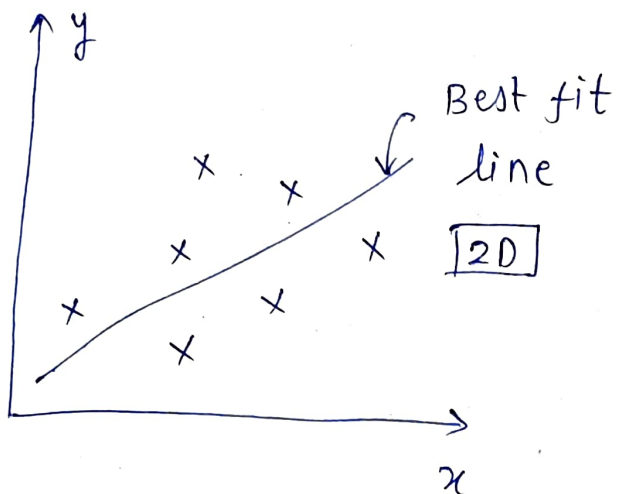 y
Best fit
line
2D
x